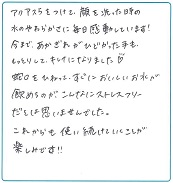 アリアスラをつけて、顔を洗った日の
水のやわらかさに毎日感動しています!
今まで、あかぎれがひどかった手も、
しっとりして、キレイになりました♡
蛇口をひねって、すぐにおいしいお水が
飲めるのが こんなにストレスフリー
だとは思いませんでした。
これからも使い続けていくことが
楽しみです!!